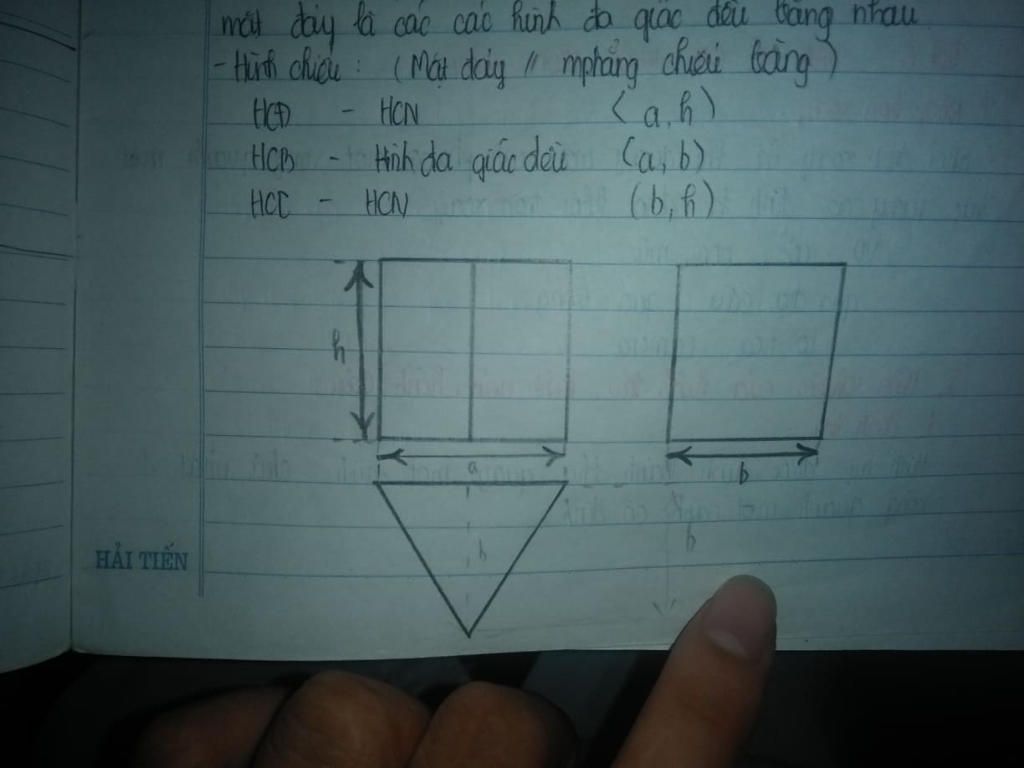 mặt đáy là các các hình đa giác đều bằng nhau
- Hình chiếu : (Mặt đáy // mphẳng chiếu bằng)
HCĐ - HCN (a, h)
HCB - Hình đa giác đều (a, b)
HCC - HCN (b, h)
h
a
b
b
b
HẢI TIẾN